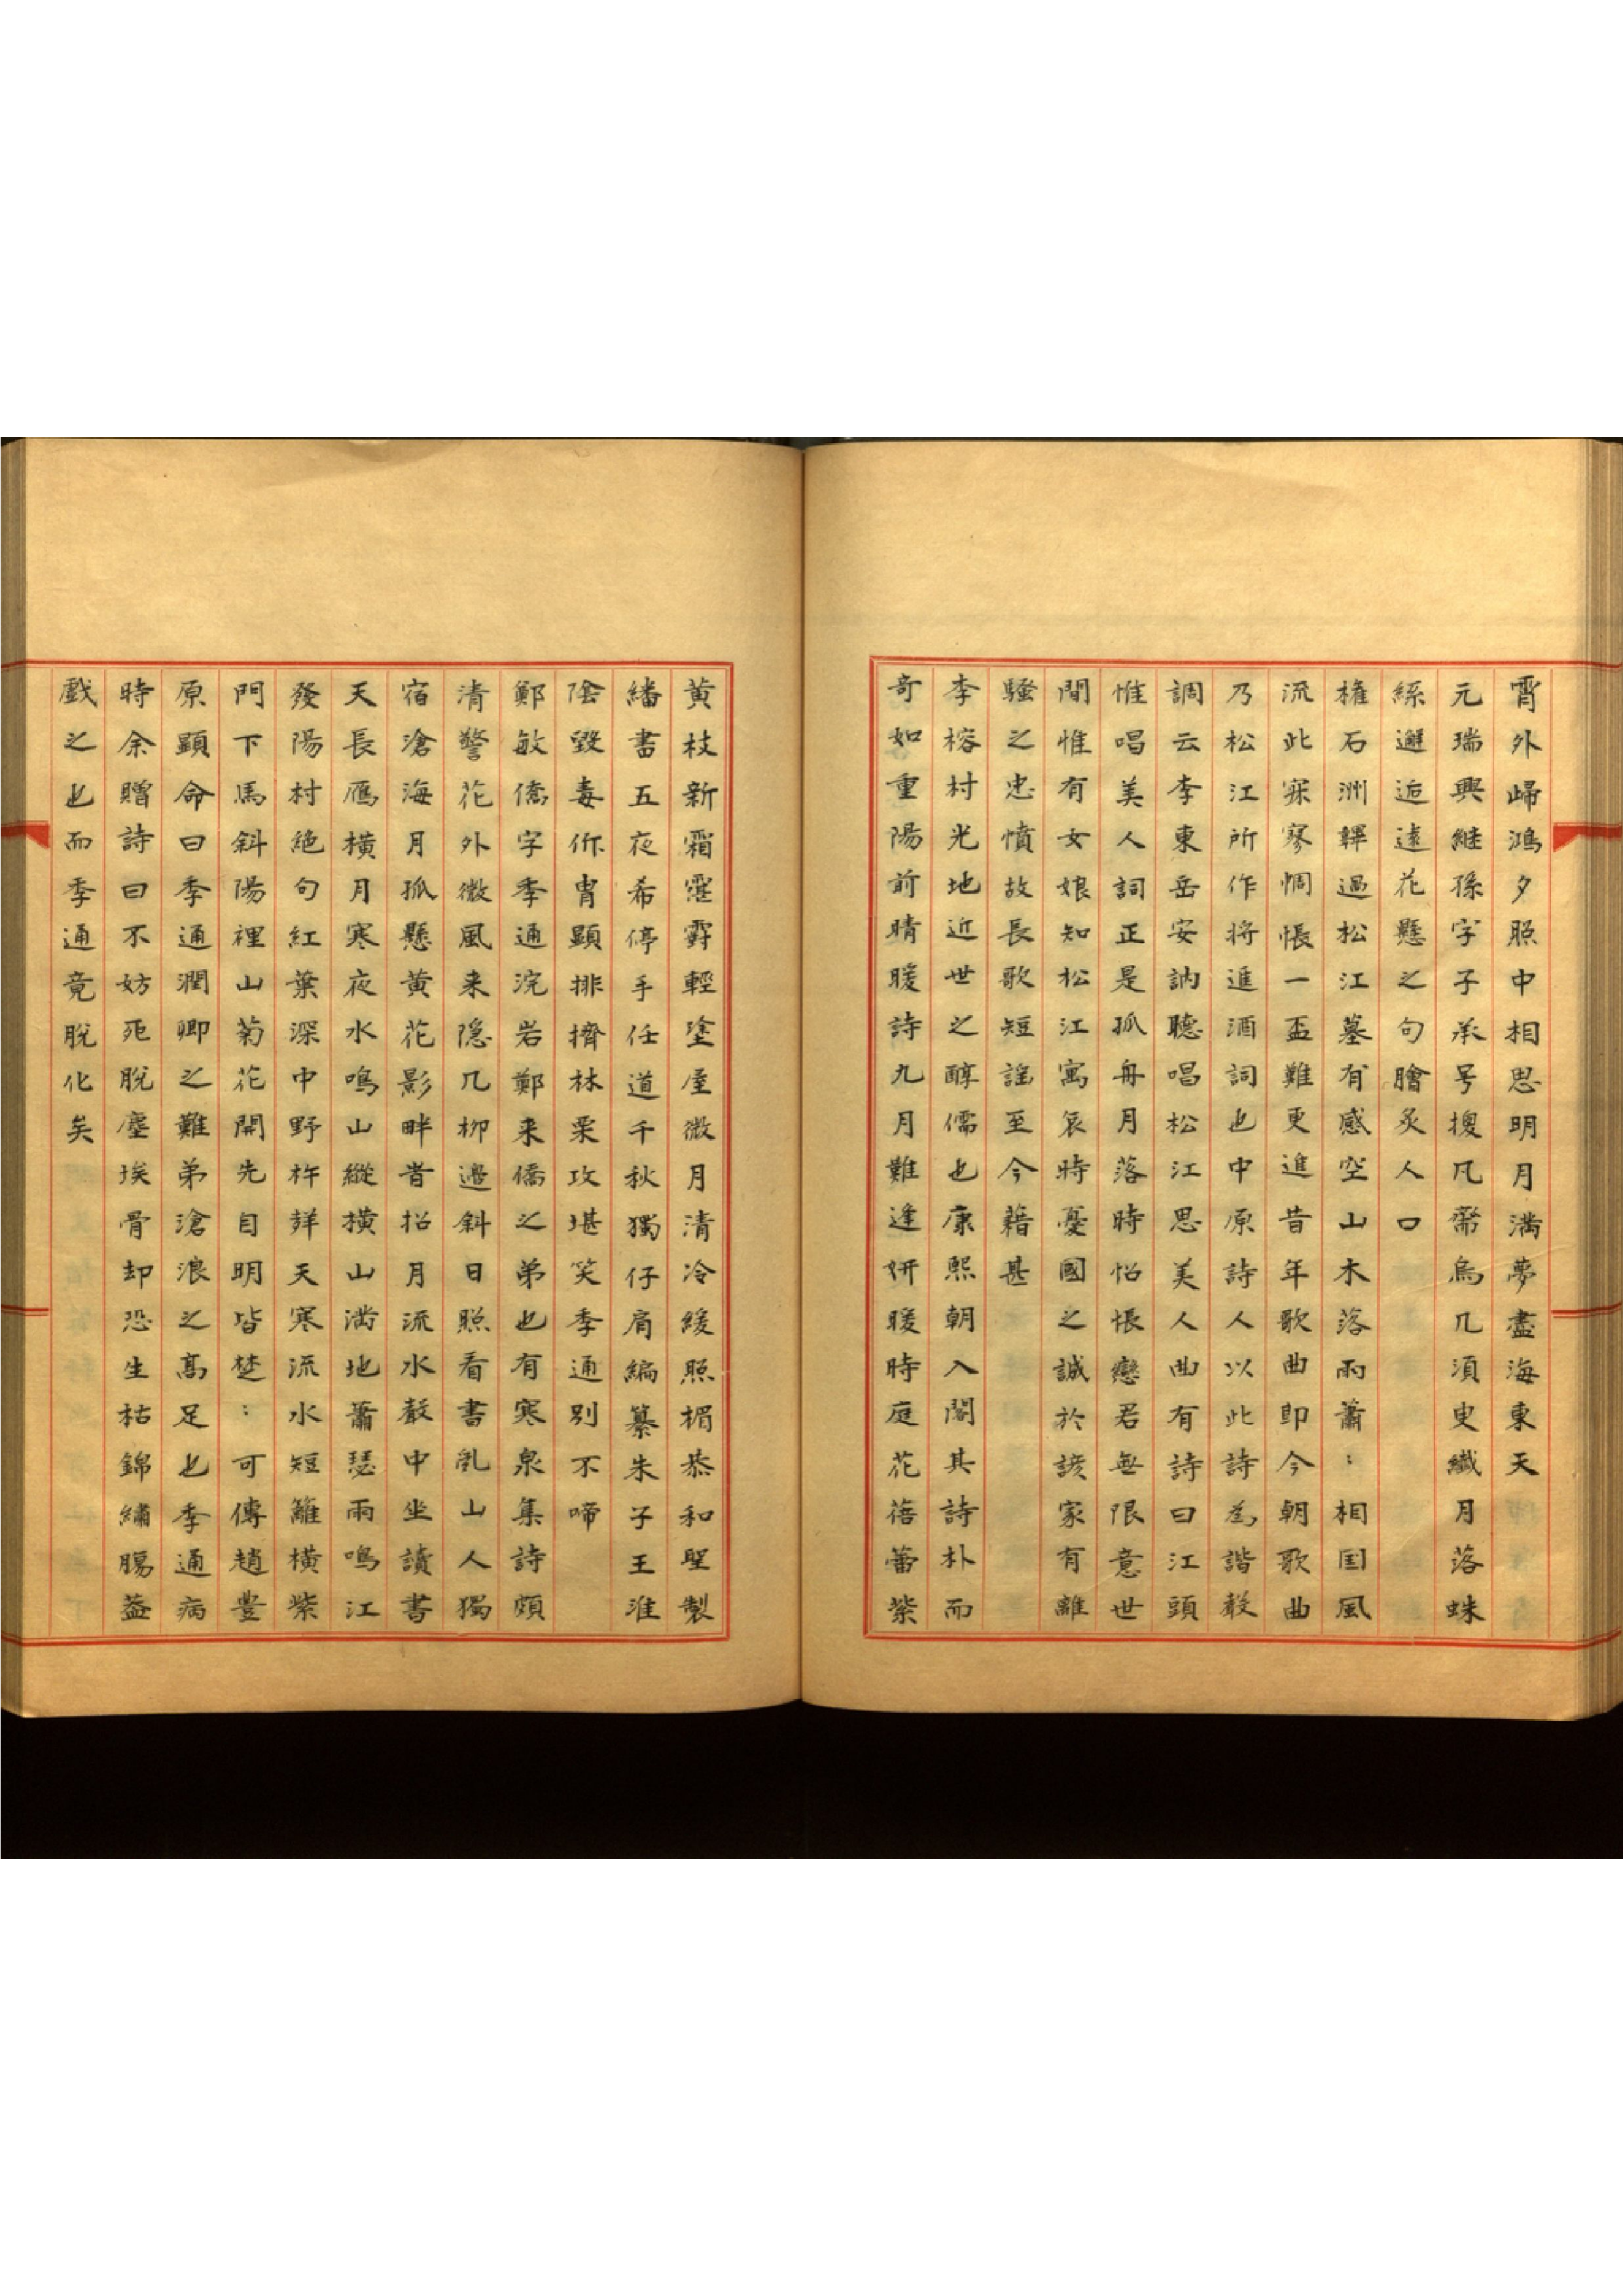 霄外歸鴻夕照中相思明月滿夢盡海東天
元瑞興継孫字子承号搜凡齋烏几須臾纖月落蛛
絲邂逅遠花懸之句膾炙人口
權石洲鞸過松江墓有感空山木落雨蕭:相国風
流此寀寥惆悵一盃難更進昔年歌曲即今朝歌曲
乃松江所作將進酒詞也中原詩人以此詩為諧聲
調云李東岳安訥聽唱松江思美人曲有詩曰江頭
惟唱美人詞正是孤舟月落時怊悵戀君無限意世
間惟有女娘知松江寓哀時憂國之誠於談家有離
騷之忠憤故長歌短謠至今藉甚
李榕村光地近世之醇儒也康熙朝入閣其詩朴而
奇如重陽前晴暖詩九月難逢妍暖時庭花蓓蕾紫
黄枝新霜霮霨輕塗屋微月清冷緩照楣恭和聖製
繙書五夜希停手任道千秋獨仔肩編纂朱子王淮
陰毀毒作胄顯排擠林栗攻堪笑季通別不啼
鄭敏僑字季通浣岩鄭来僑之弟也有寒泉集詩頗
清警花外微風来隐几柳邉斜日照看書乱山人獨
宿滄海月孤懸黄花影畔昔招月流水聲中坐讀書
天長鴈横月寒夜水鳴山縱横山滿地蕭瑟雨鳴江
發陽村絶句紅葉深中野杵鮮天寒流水短籬横紫
門下馬斜陽裡山菊花開先自明皆楚:可傳趙豊
原顕命曰季通潤卿之難弟滄浪之高足也季通病
時余贈詩曰不妨死脫塵埃骨却恐生枯錦繡膓葢
戲之也而季通竟脫化矣